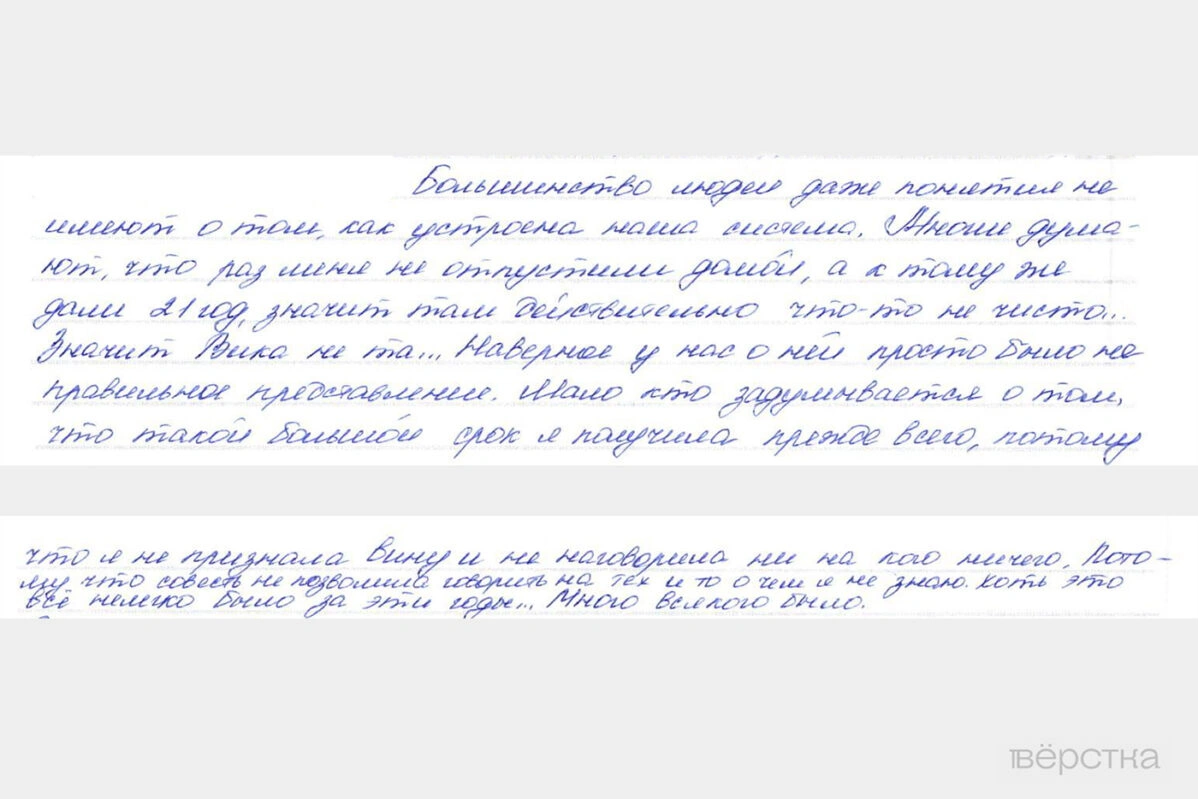 Большинство людей даже понятия не
имеют о том, как устроена наша система. Многие дума-
ют, что раз меня не отпустили домой, а к тому же
дали 21 год, значит там действительно что-то не чисто...
Значит Вика не та... Наверное у нас о ней просто было не
правильное представление. Мало кто задумывается о том,
что такой большой срок я получила прежде всего, потому
что я не признала вину и не наговорила ни на кого ничего. Пото-
му что совесть не позволила говорить на тех и то о чем я не знаю. Хоть это
всё нелегко было за эти годы... Много всякого было.
вёрстка